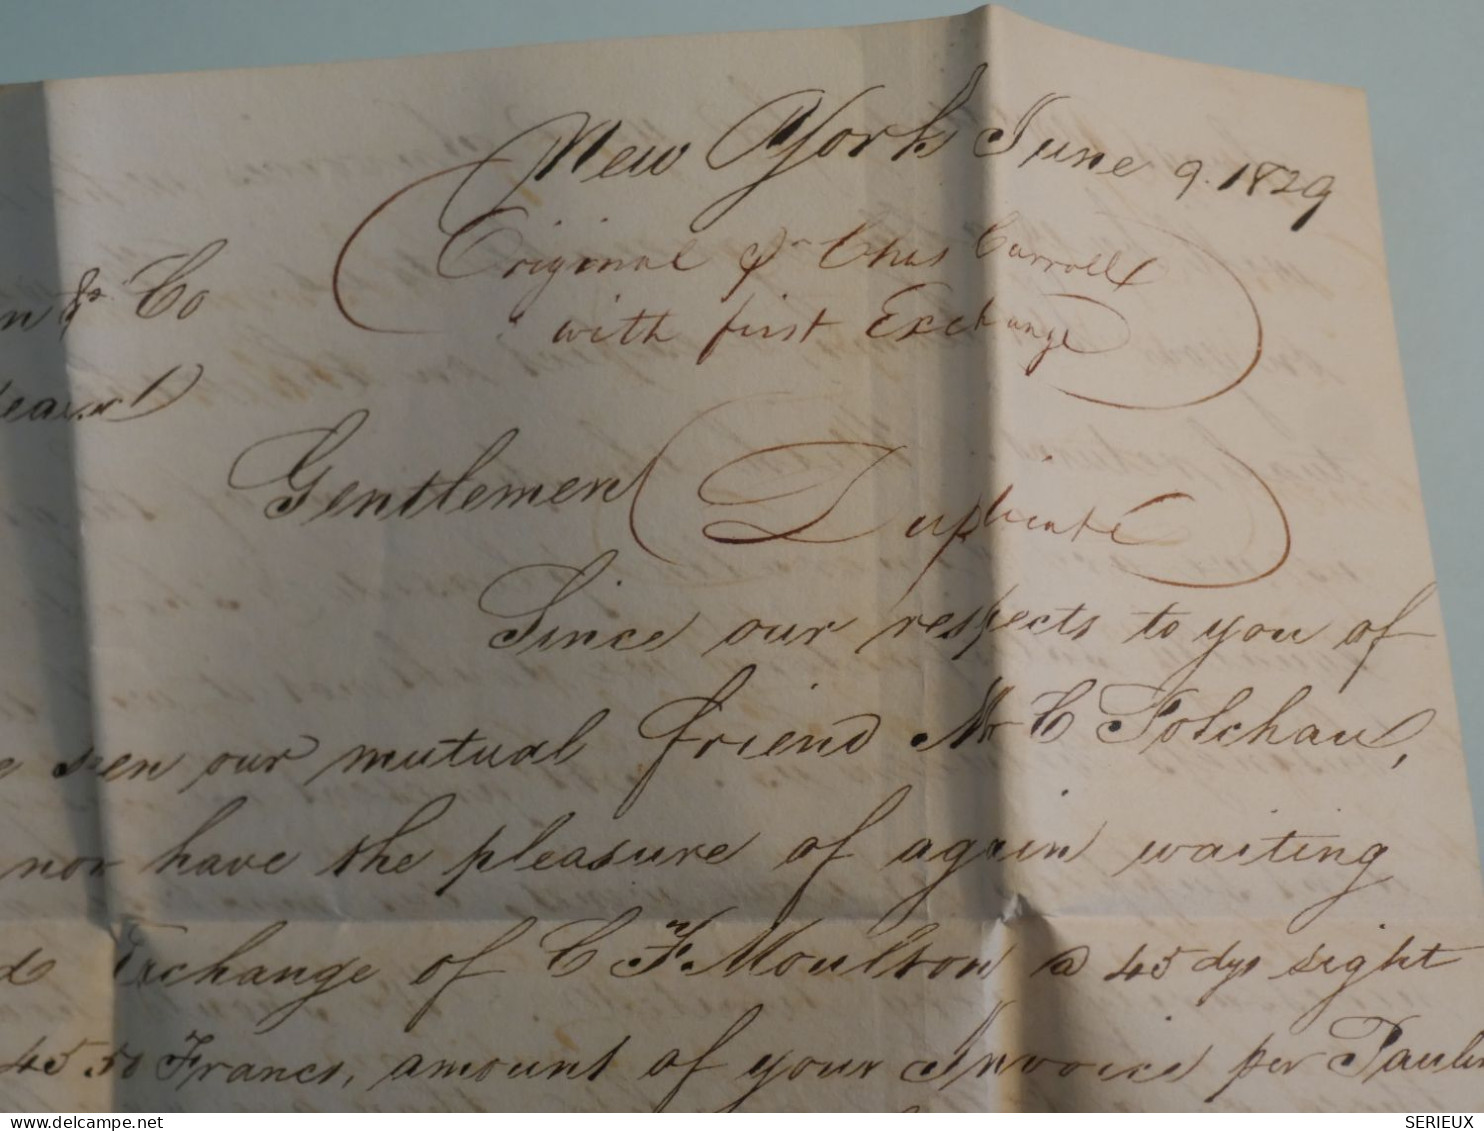 New York June 9. 1829
Original pr Chas Carroll
with first Exchange
n & Co
Gentlemen
Duplicate
Since our respects to you of
seen our mutual friend Mr C Tolchau,
now have the pleasure of again waiting
Exchange of C F Moulton @ 45 dys sight
4550 Francs, amount of your Invoice per Paulin
delcampe.net
SERIEUX